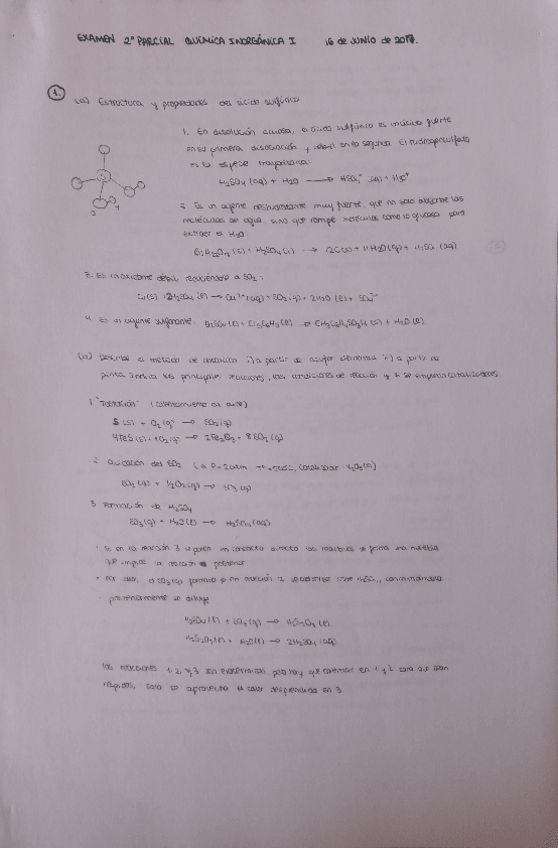 EXAMEN 2º PARCIAL QUÍMICA INORGÁNICA I 16 de JUNIO de 2017.
1.
(a) Estructura y propiedades del ácido sulfúrico
1. En disolución acuosa, el ácido sulfúrico es ácido fuerte
en su primera disociación y débil en la segunda. El hidrogenosulfato
es la especie mayoritaria:
H2SO4 (aq) + H2O → HSO4- (aq) + H3O+
2. Es un agente deshidratante muy fuerte, que no solo absorbe las
moléculas de agua sino que rompe moléculas como la glucosa para
extraer el H2O:
3. Es un oxidante débil, reduciéndose a SO2:
4. Es un agente sulfonante.
(b) Describe el método de obtención i) a partir de azufre elemental ii) a partir de
pirita. Indica las principales reacciones, las condiciones de reacción y si se emplean catalizadores.
1. "Tostación" (calentamiento en aire)
S (s) + O2 (g) → SO2 (g)
→ 2Fe2O3 + 8SO2 (g)
2. Oxidación del SO2
SO2 (g) + 1/2 O2 (g) → SO3 (g)
3. Formación de H2SO4
SO3 (g) + H2O (l) → H2SO4 (aq)
· Si en la reacción 3 se ponen en contacto directo los reactivos se forma una niebla
que impide la reacción posterior
· Por ello, el SO3 (g) formado en reacción 2 se adiciona sobre H2SO4 concentrado
· posteriormente se diluye
H2SO4 (l) + SO3 (g) → H2S2O7 (l)
H2S2O7 (l) + H2O (l) → 2H2SO4 (aq)
Las reacciones 1, 2 y 3 son exotérmicas pero hay que calentar en 1 y 2 para que sean
rápidas, solo se aprovecha el calor desprendido en 3.